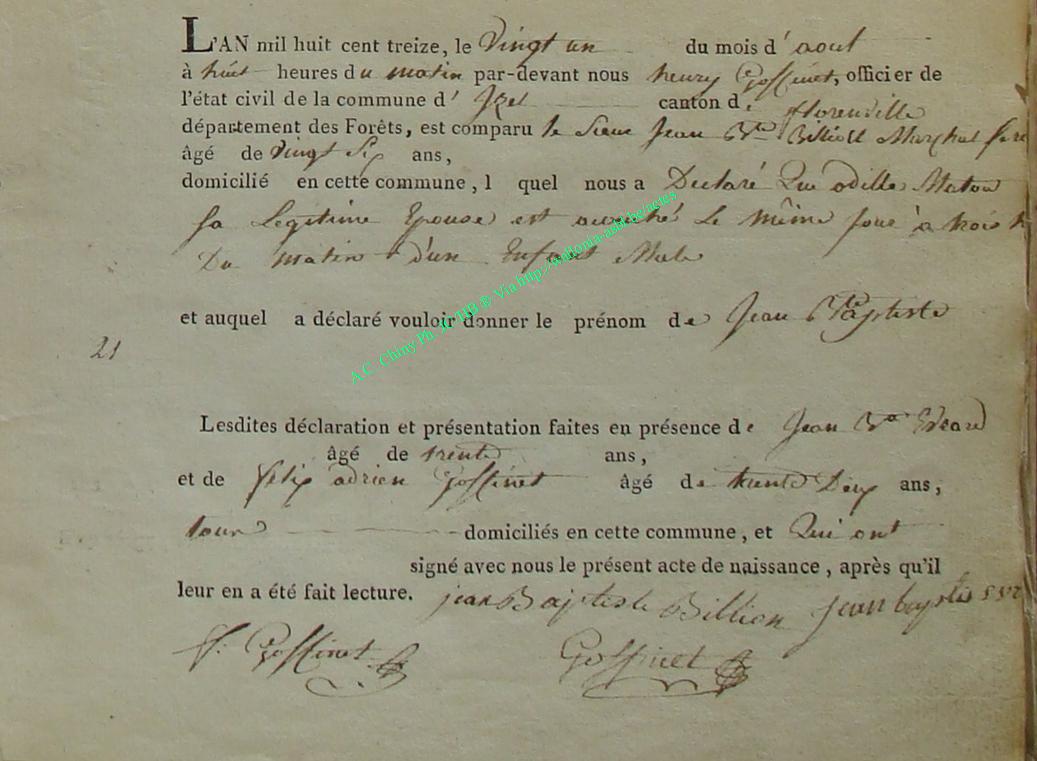 L'AN mil huit cent treize, le Vingt un du mois d'aout
à huit heures du matin par-devant nous henry Goffinet, officier de
l'état civil de la commune d'Izel canton de florenville
département des Forêts, est comparu le Sieur Jean Bte Billion Marchal
âgé de Vingt Six ans,
domicilié en cette commune, l quel nous a Declaré Que odille Maton
Sa Legitime Epouse est accouché Le même jour à trois h
Du matin d'un Enfant Male
et auquel a déclaré vouloir donner le prénom de Jean Baptiste
21
Lesdites déclaration et présentation faites en présence de Jean Bte
âgé de trente ans,
et de felix adrien Goffinet âgé de trente Deux ans,
tous domiciliés en cette commune, et Qui ont
signé avec nous le présent acte de naissance, après qu'il
leur en a été fait lecture. jean Baptiste Billion jean baptis
f. Goffinet Goffinet
A.C. Chiny Ph. JC HB @ Via http://wallonia-asbl.be/actes